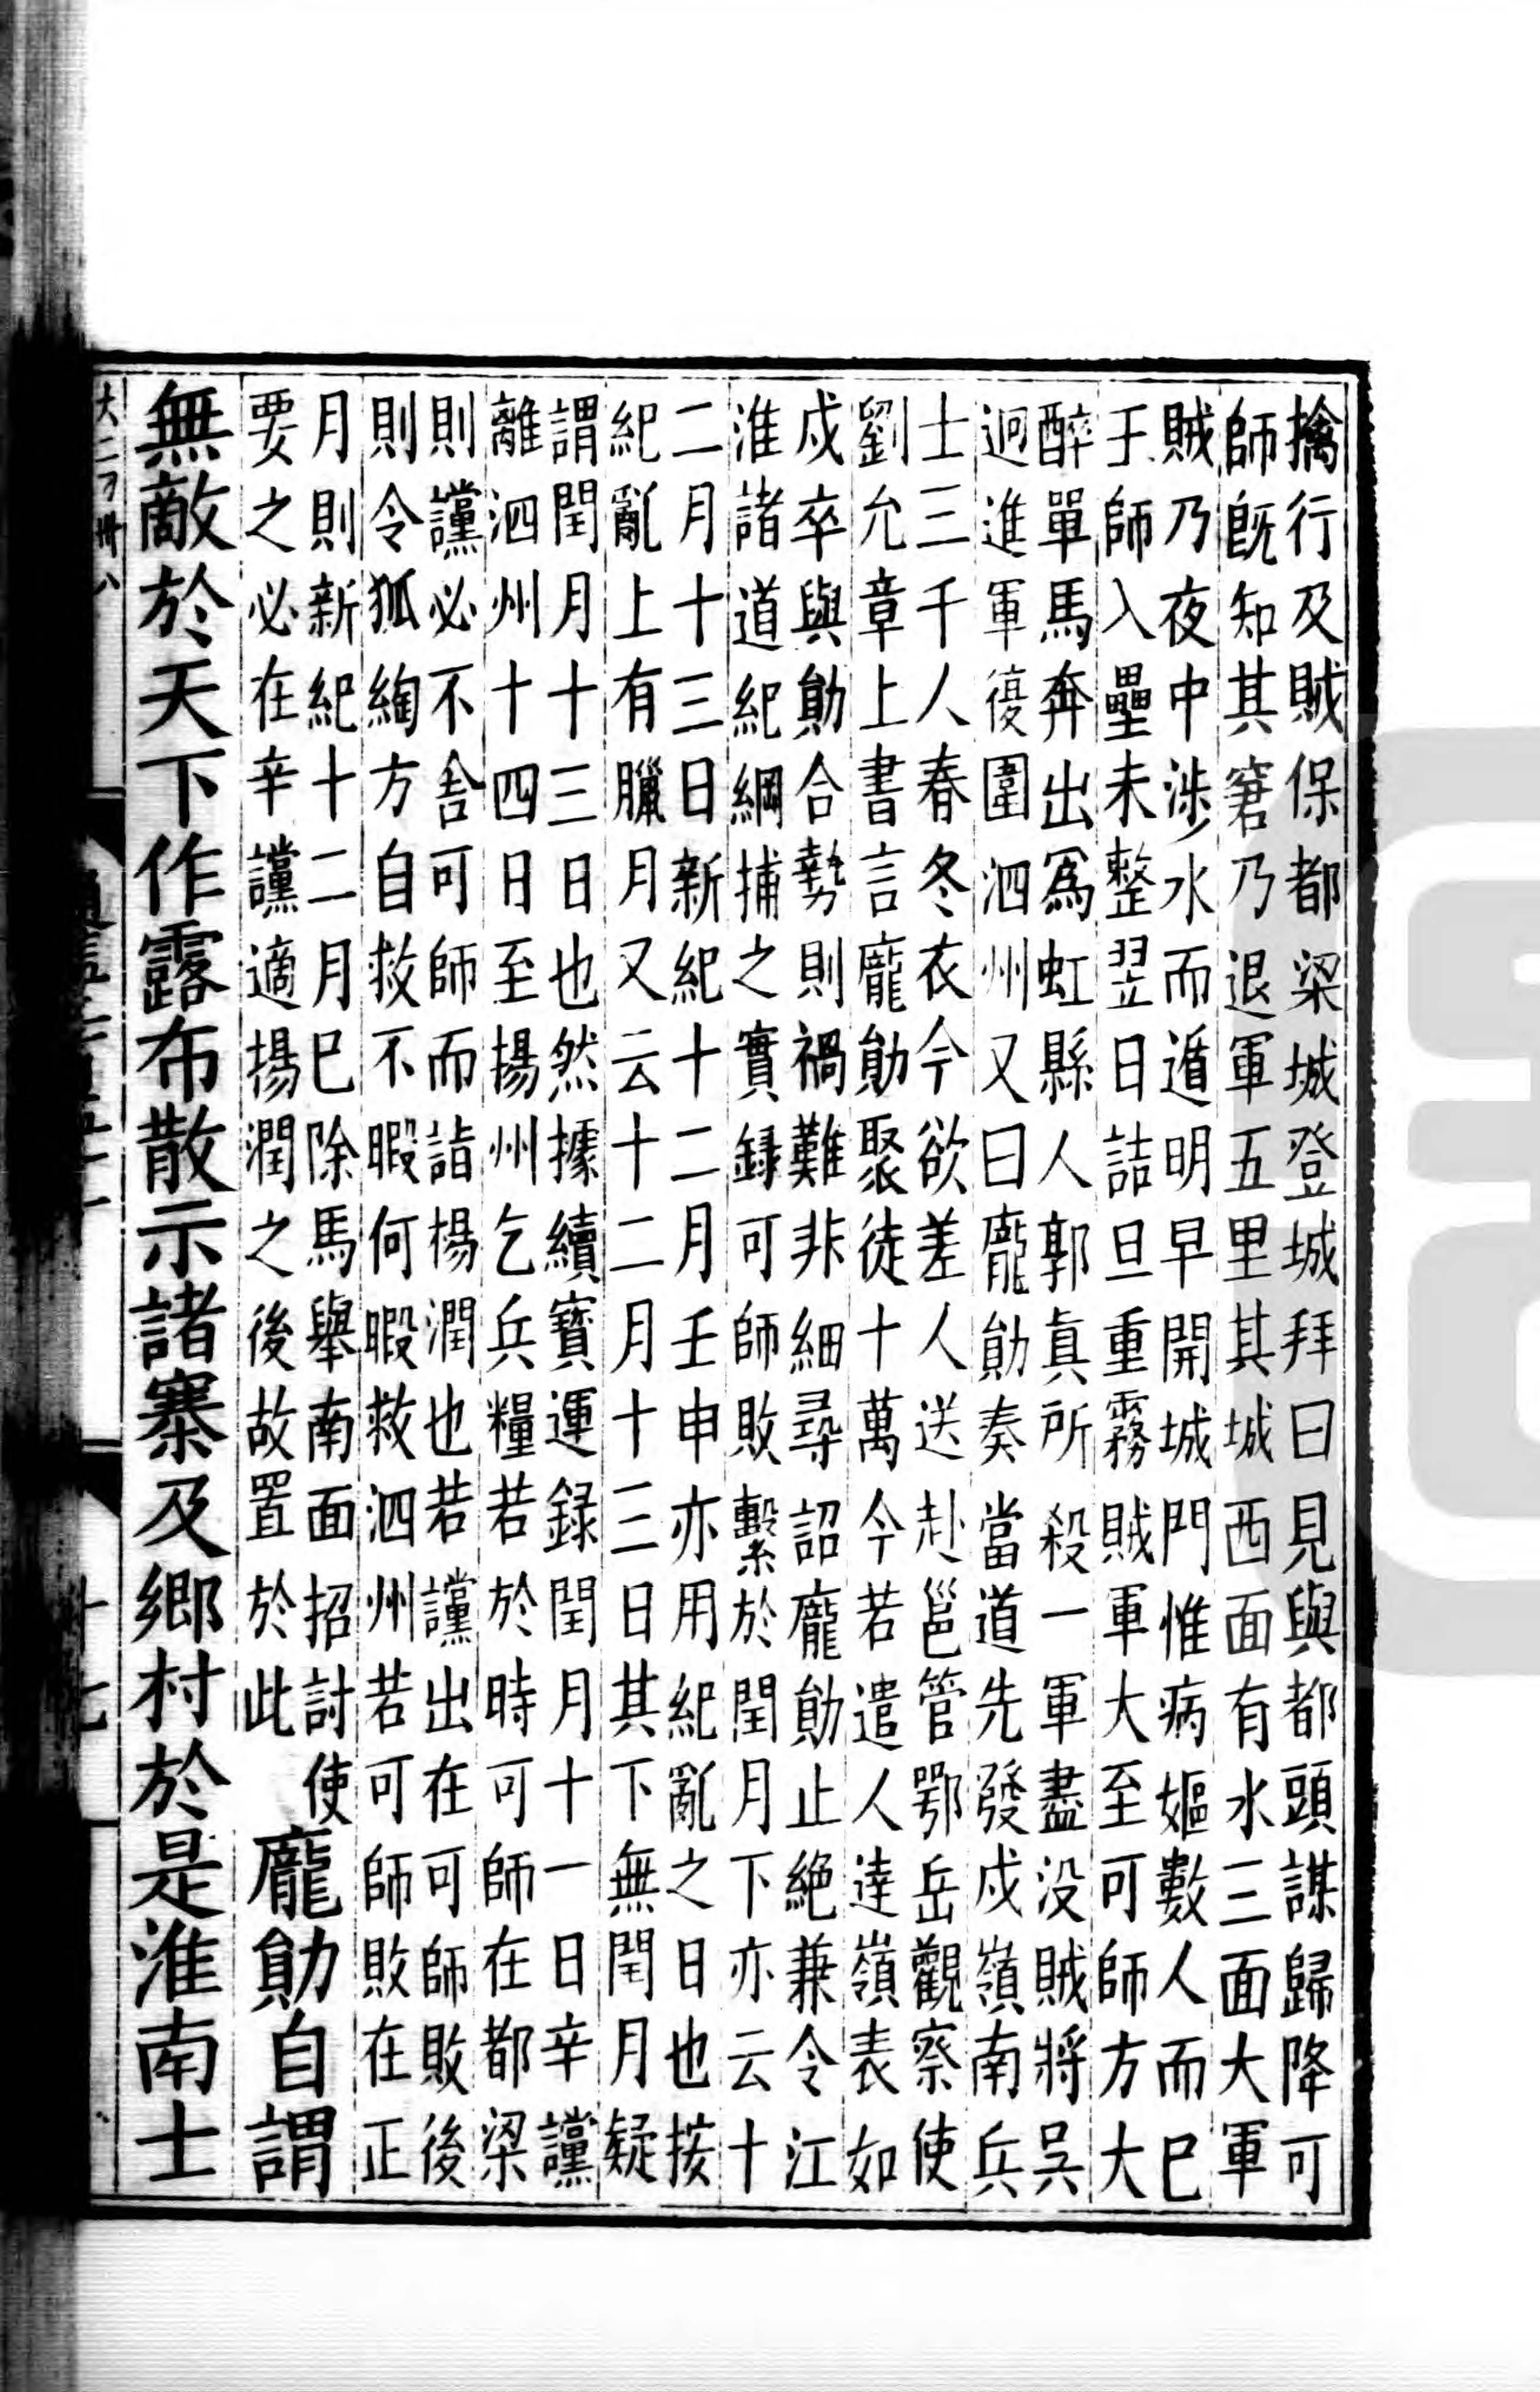 擒行及賊保都梁城登城拜曰見與都頭謀歸降可
師旣知其窘乃退軍五里其城西面有水三面大軍
賊乃夜中涉水而遁明早開城門惟病嫗數人而已
于師入壘未整翌日詰旦重霧賊軍大至可師方大
醉單馬奔出爲虹縣人郭真所殺一軍盡没賊將吳
迥進軍復圍泗州又曰龐勛奏當道先發戍嶺南兵
士三千人春冬衣今欲差人送赴邕管鄂岳觀察使
劉允章上書言龐勛聚徒十萬今若遣人達嶺表如
戍卒與勛合勢則禍難非細尋詔龐勛止絶兼令江
淮諸道紀綱捕之實録可師敗繫於閏月下亦云十
二月十三日新紀十二月壬申亦用紀亂之日也按
紀亂上有臘月又云十二月十三日其下無閏月疑
謂閏月十三日也然據續寶運録閏月十一日辛讜
離泗州十四日至揚州乞兵糧若於時可師在都梁
則讜必不舍可師而詣楊潤也若讜出在可師敗後
則令狐綯方自救不暇何暇救泗州若可師敗在正
月則新紀十二月已除馬舉南面招討使
要之必在辛讜適揚潤之後故置於此
龐勛自謂
無敵於天下作露布散示諸寨及鄉村於是淮南士